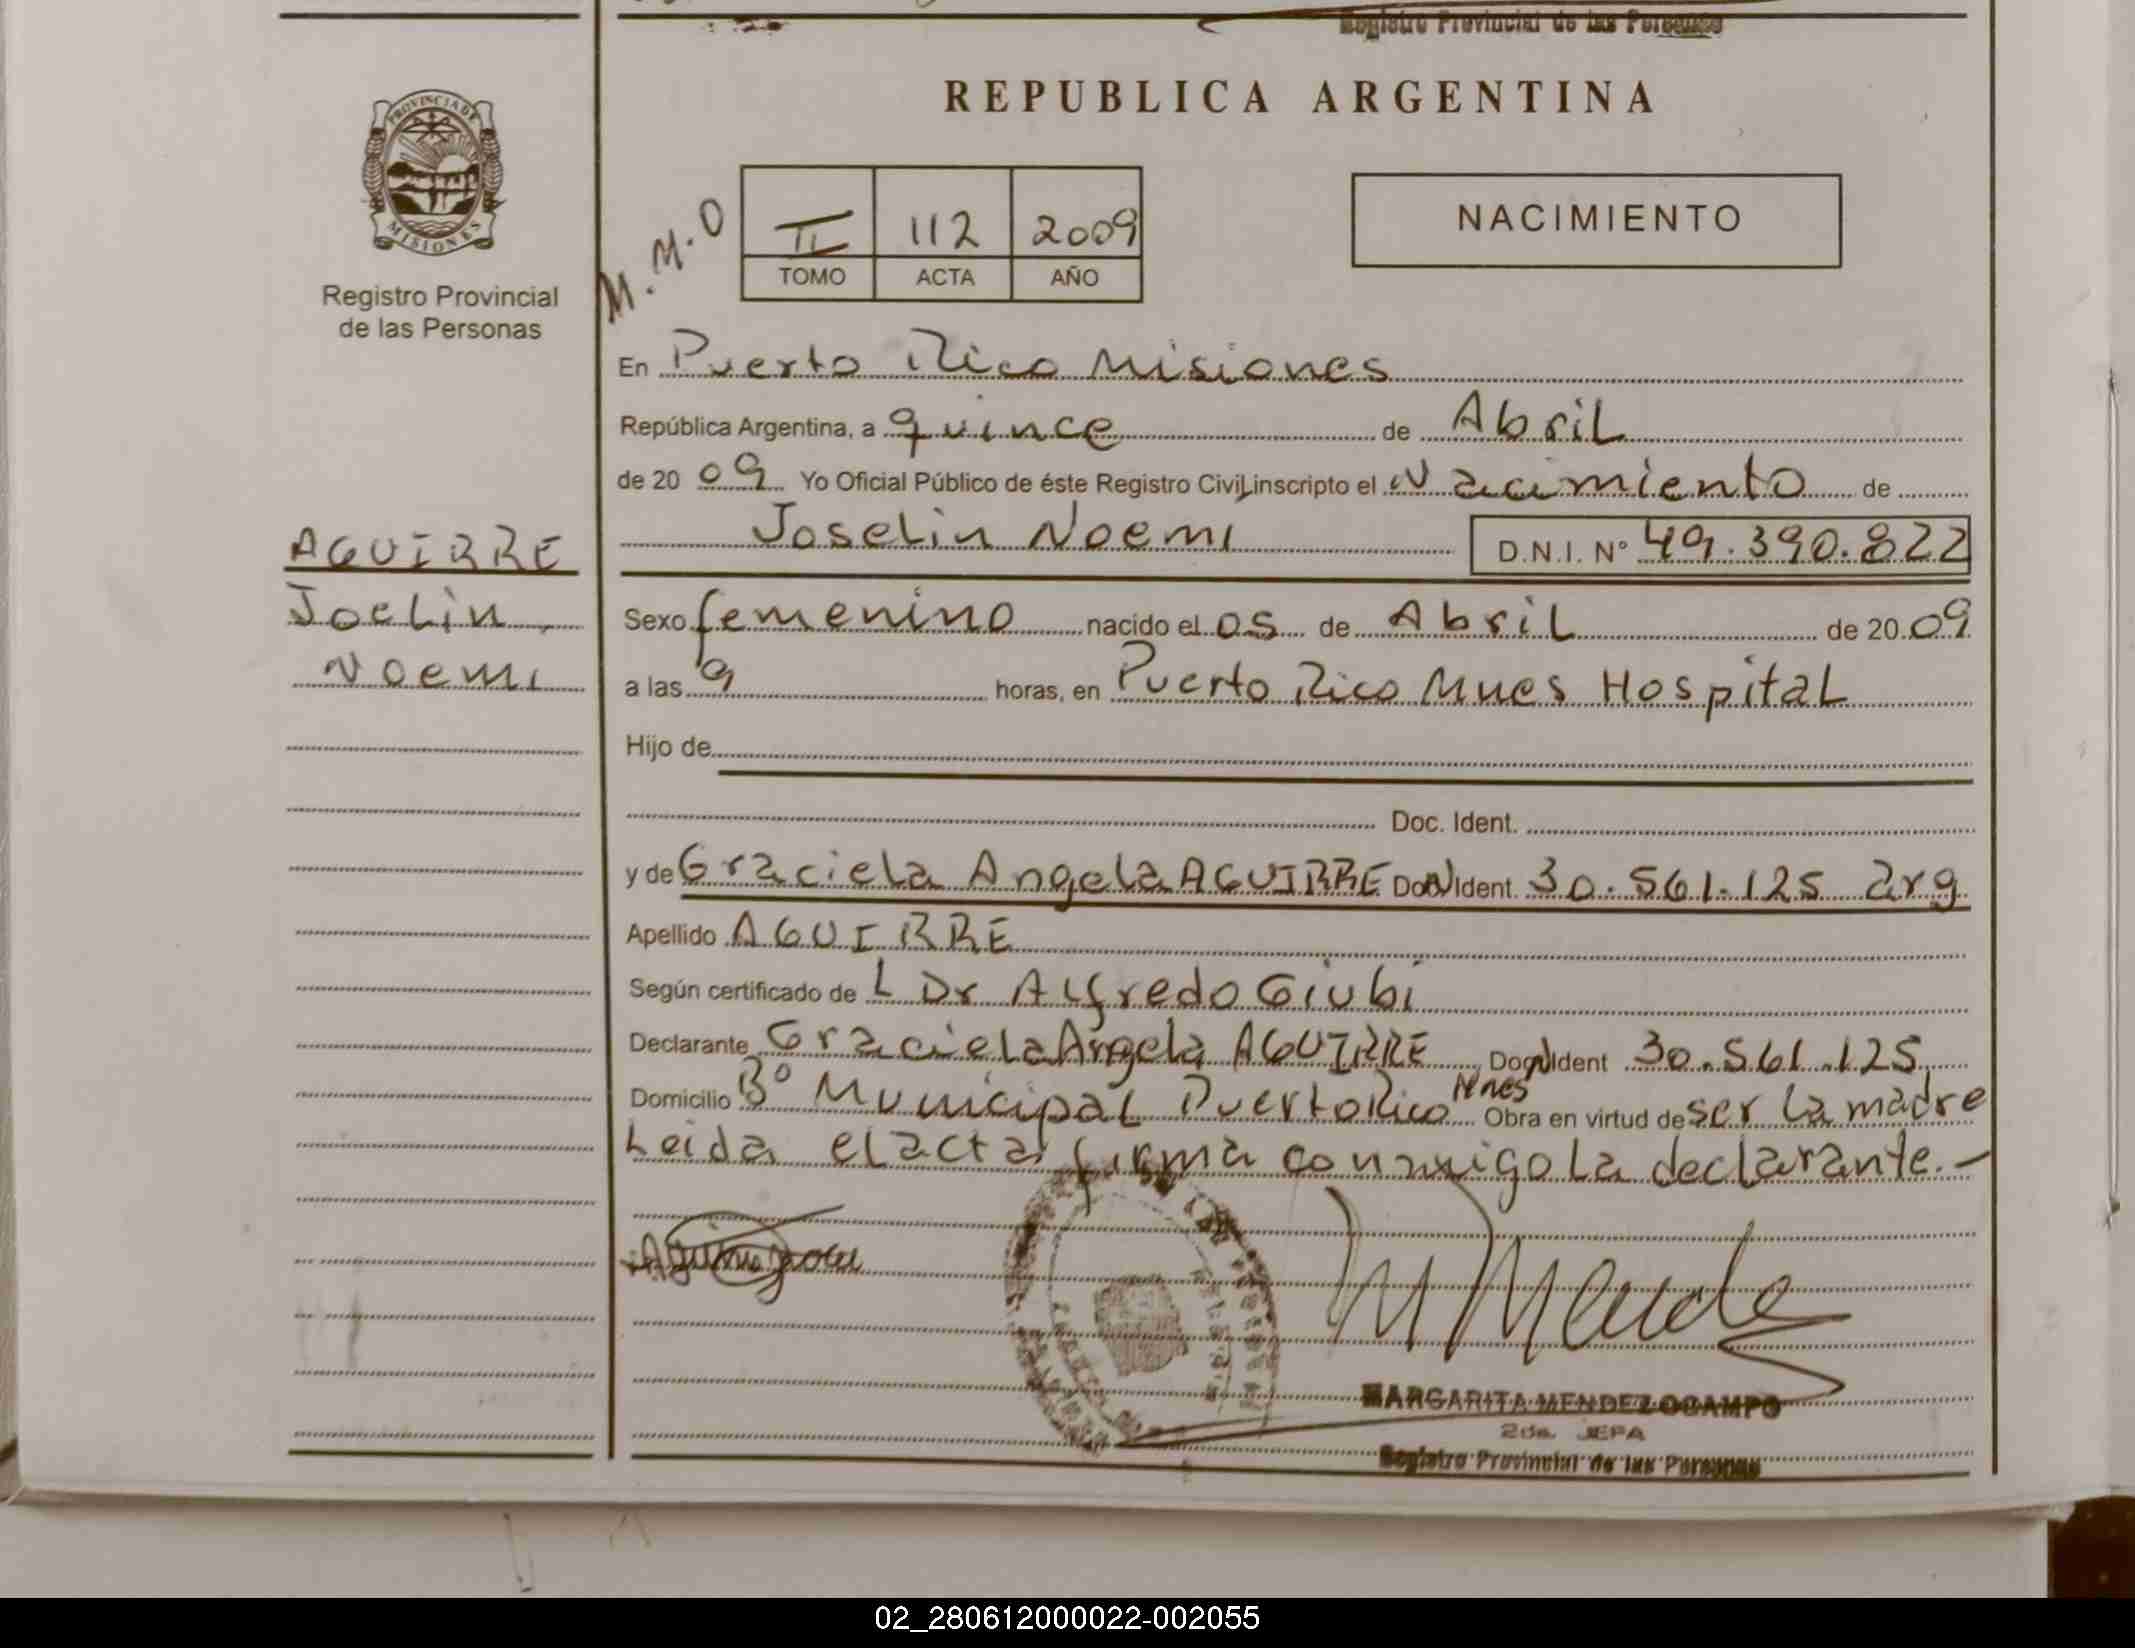 Registro Provincial de las Personas
PROVINCIA DE
MISIONES
Registro Provincial
de las Personas
AGUIRRE
Joelin
Noemi
REPUBLICA ARGENTINA
M.M.O
II 112 2009
TOMO ACTA AÑO
NACIMIENTO
En Puerto Rico Misiones
República Argentina, a quince de Abril
de 20 09 Yo Oficial Público de éste Registro Civil, inscripto el Nacimiento de
Joselin Noemi D.N.I. Nº 49.390.822
Sexo femenino nacido el 05 de Abril de 20 09
a las 9 horas, en Puerto Rico Mnes Hospital
Hijo de
Doc. Ident.
y de Graciela Angela AGUIRRE Doc. Ident. 30.561.125 arg
Apellido AGUIRRE
Según certificado de L Dr Alfredo Giubi
Declarante Graciela Angela AGUIRRE Doc. Ident 30.561.125
Domicilio Bº Municipal Puerto Rico Mnes Obra en virtud de ser la madre
Leida el acta firma conmigo la declarante.-
MARGARITA MENDEZ OCAMPO
2da. JEFA
Registro Provincial de las Personas
02_280612000022-002055